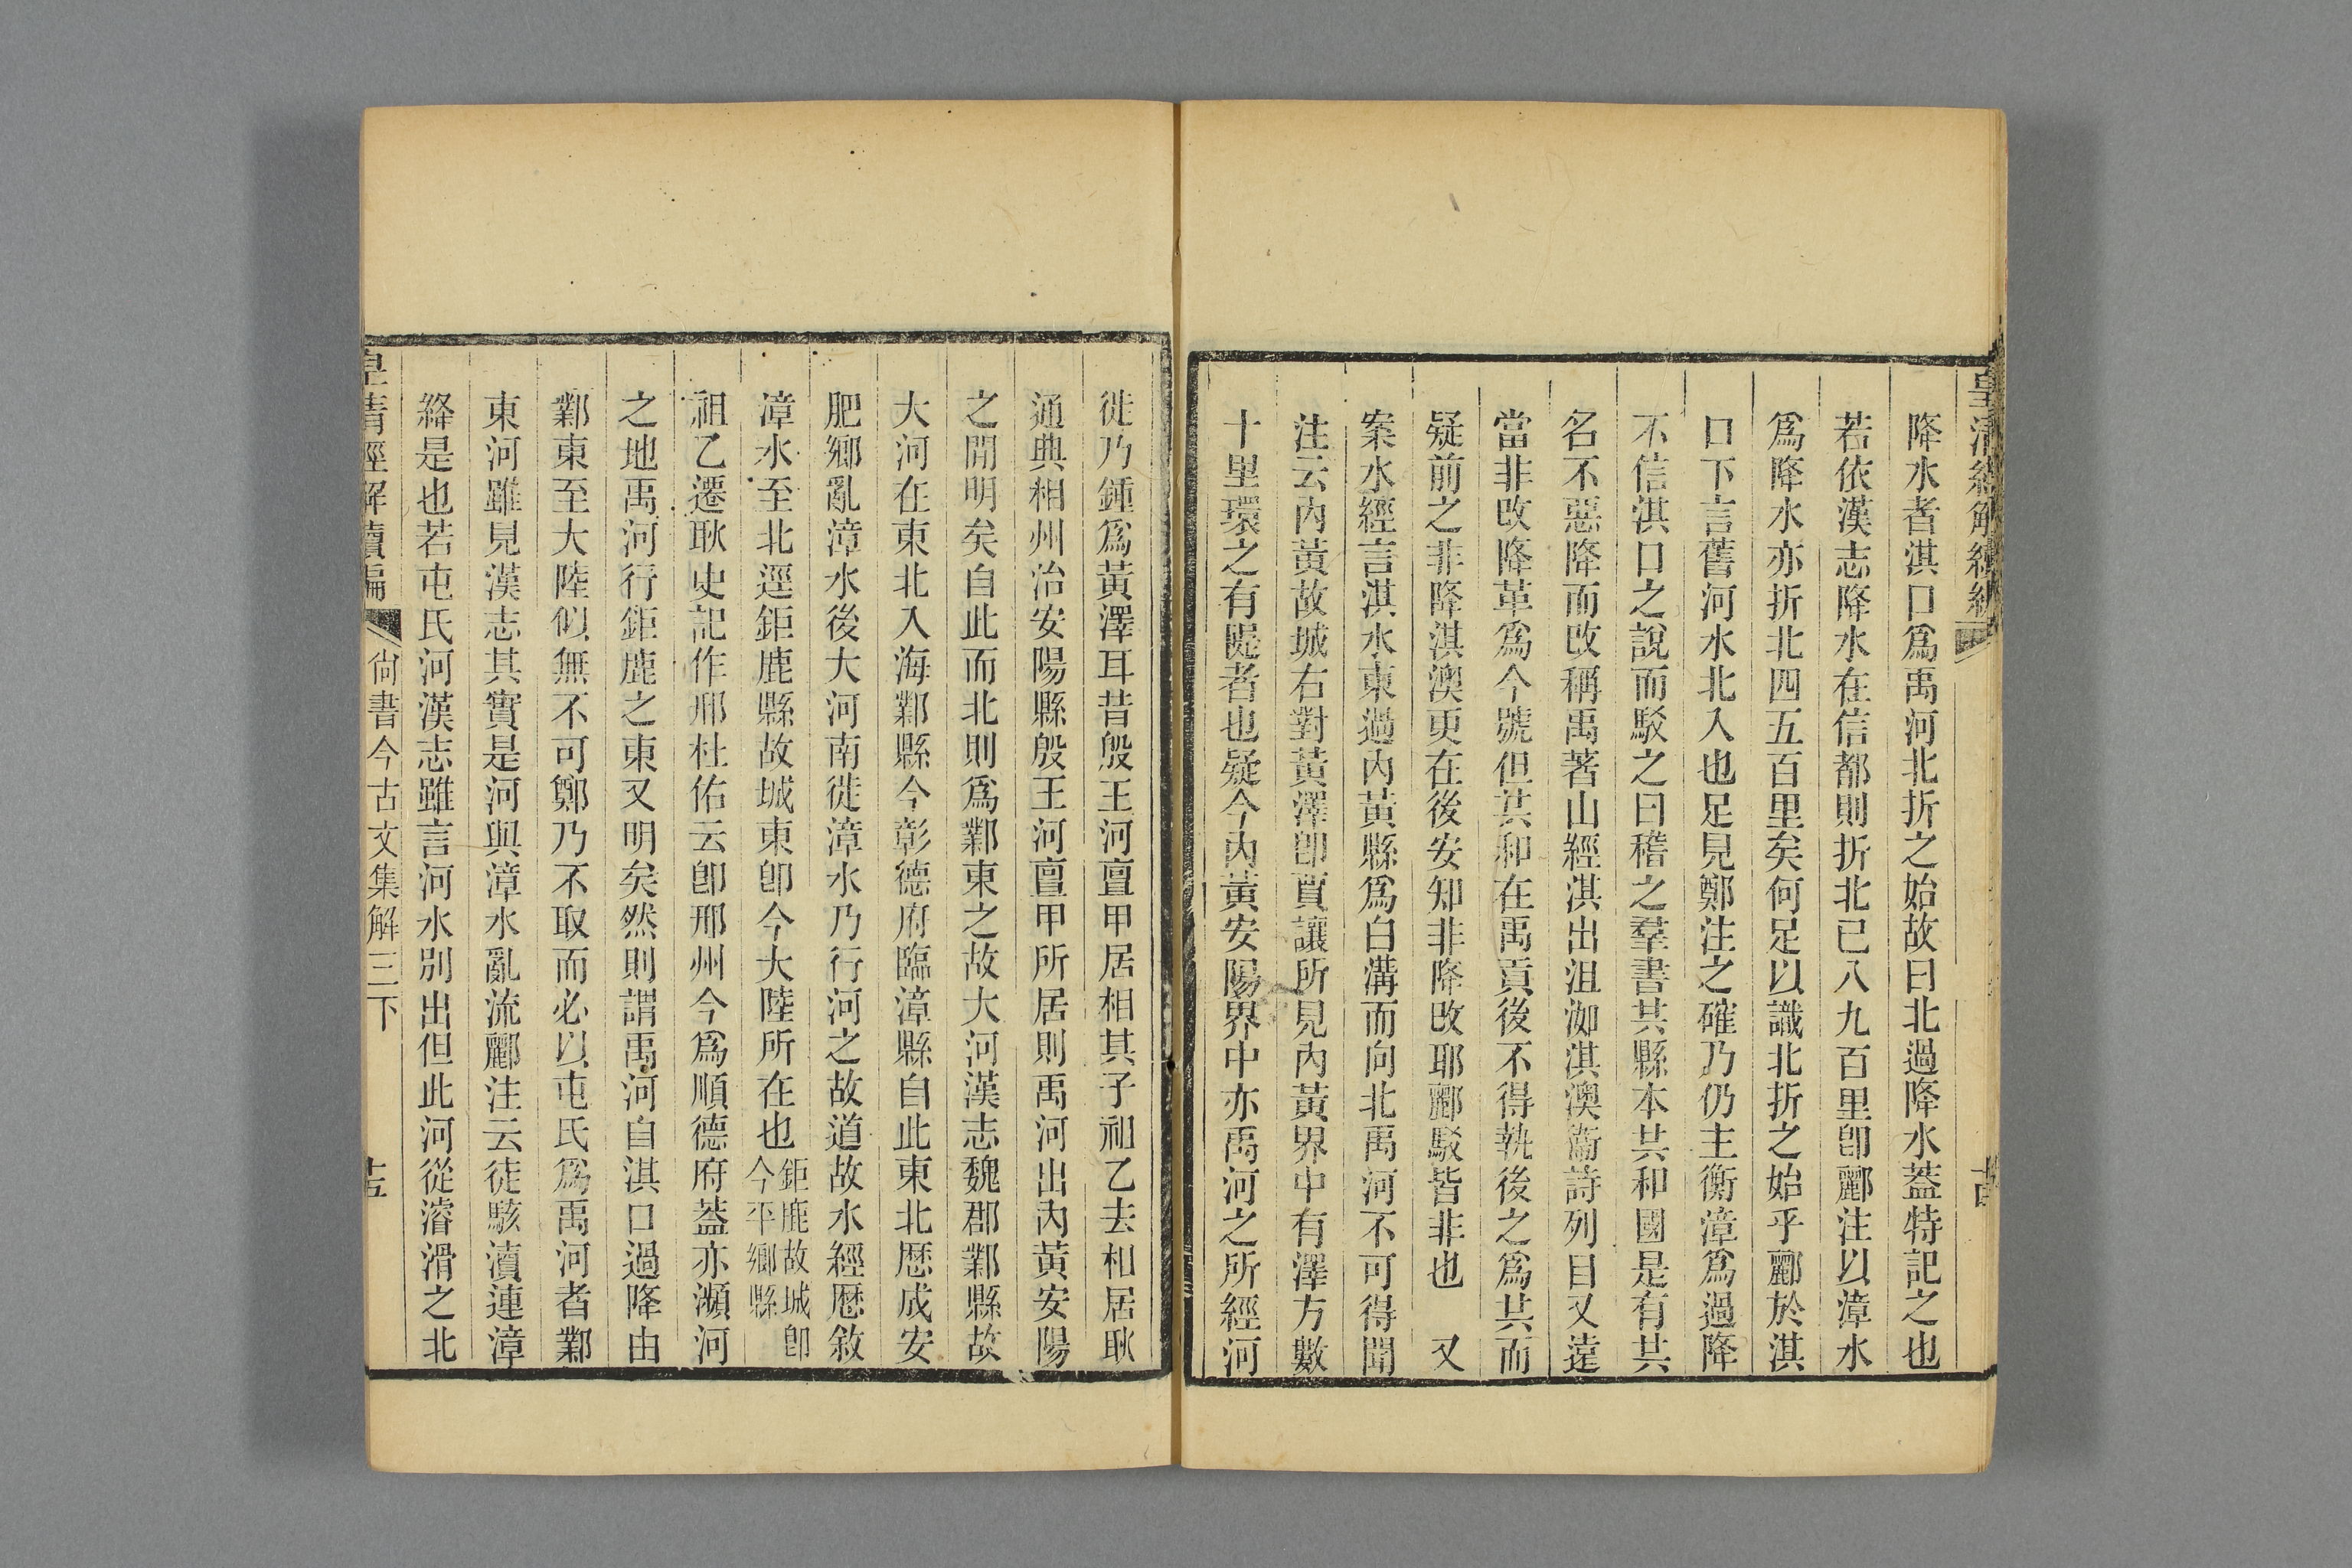 皇清經解續編
十四
降水者淇口爲禹河北折之始故曰北過降水蓋特記之也
若依漢志降水在信都則折北已八九百里卽酈注以漳水
爲降水亦折北四五百里矣何足以識北折之始乎酈於淇
口下言舊河水北入也足見鄭注之確乃仍主衡漳爲過降
不信淇口之說而駁之曰稽之羣書共縣本共和國是有共
名不惡降而改稱禹著山經淇出沮洳淇澳衞詩列目又遠
當非改降革爲今號但共和在禹貢後不得執後之爲共而
疑前之非降淇澳更在後安知非降改耶酈駁皆非也　又
案水經言淇水東過內黃縣爲白溝而向北禹河不可得聞
注云內黃故城右對黃澤卽賈讓所見內黃界中有澤方數
十里環之有隄者也疑今內黃安陽界中亦禹河之所經河
徙乃鍾爲黃澤耳昔殷王河亶甲居相其子祖乙去相居耿
通典相州治安陽縣殷王河亶甲所居則禹河出內黃安陽
之閒明矣自此而北則爲鄴東之故大河漢志魏郡鄴縣故
大河在東北入海鄴縣今彰德府臨漳縣自此東北歷成安
肥鄉亂漳水後大河南徙漳水乃行河之故道故水經歷敘
漳水至北逕鉅鹿縣故城東卽今大陸所在也鉅鹿故城卽今平鄉縣
祖乙遷耿史記作邢杜佑云卽邢州今爲順德府蓋亦瀕河
之地禹河行鉅鹿之東又明矣然則謂禹河自淇口過降由
鄴東至大陸似無不可鄭乃不取而必以屯氏爲禹河者鄴
東河雖見漢志其實是河與漳水亂流酈注云徒駭瀆連漳
絳是也若屯氏河漢志雖言河水別出但此河從濬滑之北
皇清經解續編
尙書今古文集解三下
十五